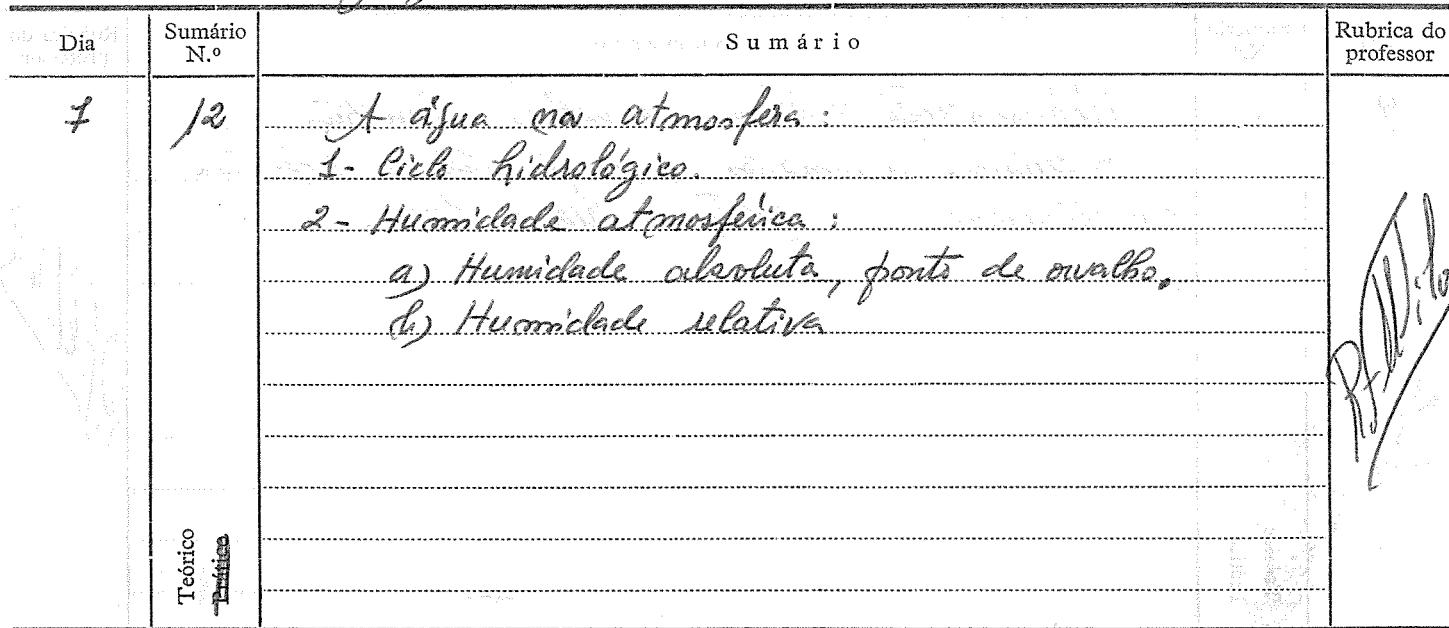 Dia
Sumário N.º
Sumário
Rubrica do professor
7
12
A água na atmosfera:
1- Ciclo hidrológico.
2- Humidade atmosférica:
a) Humidade absoluta, ponto de orvalho.
b) Humidade relativa
Teórico
Prático